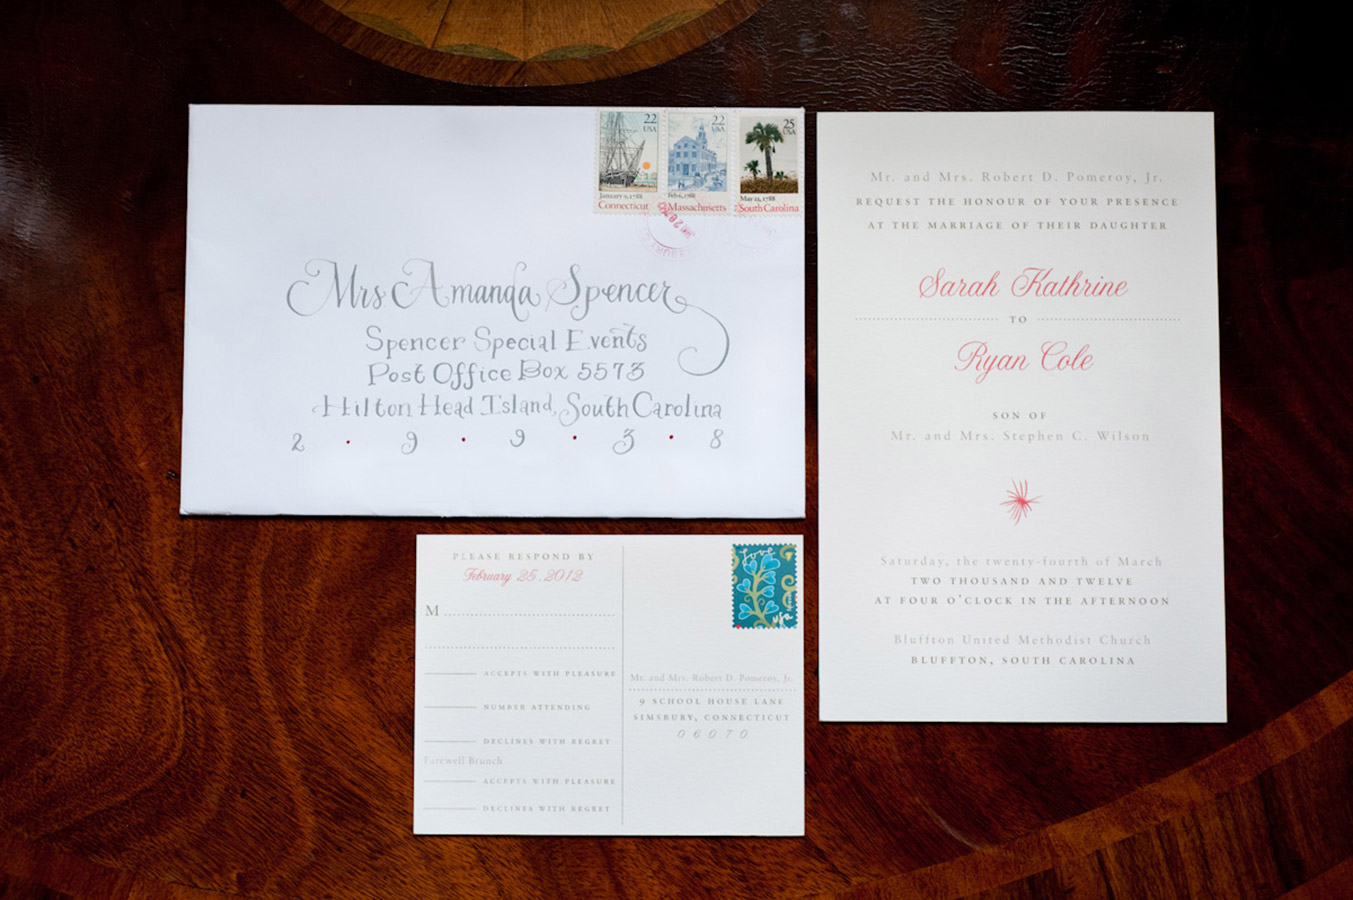 22
USA
January 9, 1788
Connecticut
22
USA
Feb 6, 1788
Massachusetts
25
USA
May 23, 1788
South Carolina
Mrs. Amanda Spencer
Spencer Special Events
Post Office Box 5573
Hilton Head Island, South Carolina
2 · 9 · 9 · 3 · 8
Mr. and Mrs. Robert D. Pomeroy, Jr.
REQUEST THE HONOUR OF YOUR PRESENCE
AT THE MARRIAGE OF THEIR DAUGHTER
Sarah Kathrine
TO
Ryan Cole
SON OF
Mr. and Mrs. Stephen C. Wilson
Saturday, the twenty-fourth of March
TWO THOUSAND AND TWELVE
AT FOUR O'CLOCK IN THE AFTERNOON
Bluffton United Methodist Church
BLUFFTON, SOUTH CAROLINA
PLEASE RESPOND BY
February 25, 2012
M
ACCEPTS WITH PLEASURE
NUMBER ATTENDING
DECLINES WITH REGRET
Farewell Brunch
ACCEPTS WITH PLEASURE
DECLINES WITH REGRET
love
usa
Mr. and Mrs. Robert D. Pomeroy, Jr.
9 SCHOOL HOUSE LANE
SIMSBURY, CONNECTICUT
06070